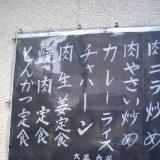 肉炒め
肉やさい炒め
カレーライス
チャーハン
肉生姜定食
焼肉定食
とんかつ定食